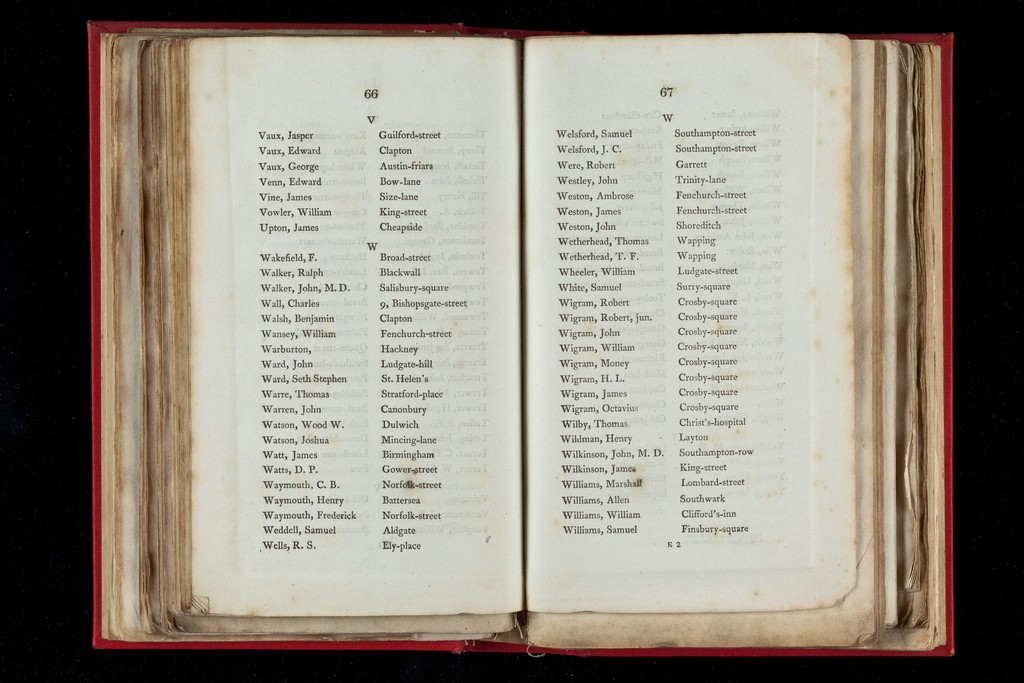 66
V
Vaux, Jasper Guilford-street
Vaux, Edward Clapton
Vaux, George Austin-friars
Venn, Edward Bow-lane
Vine, James Size-lane
Vowler, William King-street
Upton, James Cheapside
W
Wakefield, F. Broad-street
Walker, Ralph Blackwall
Walker, John, M. D. Salisbury-square
Wall, Charles 9, Bishopsgate-street
Walsh, Benjamin Clapton
Wansey, William Fenchurch-street
Warburton, Hackney
Ward, John Ludgate-hill
Ward, Seth Stephen St. Helen's
Warre, Thomas Stratford-place
Warren, John Canonbury
Watson, Wood W. Dulwich
Watson, Joshua Mincing-lane
Watt, James Birmingham
Watts, D. P. Gower-street
Waymouth, C. B. Norfolk-street
Waymouth, Henry Battersea
Waymouth, Frederick Norfolk-street
Weddell, Samuel Aldgate
Wells, R. S. Ely-place
67
W
Welsford, Samuel Southampton-street
Welsford, J. C. Southampton-street
Were, Robert Garrett
Westley, John Trinity-lane
Weston, Ambrose Fenchurch-street
Weston, James Fenchurch-street
Weston, John Shoreditch
Wetherhead, Thomas Wapping
Wetherhead, T. F. Wapping
Wheeler, William Ludgate-street
White, Samuel Surry-square
Wigram, Robert Crosby-square
Wigram, Robert, jun. Crosby-square
Wigram, John Crosby-square
Wigram, William Crosby-square
Wigram, Money Crosby-square
Wigram, H. L. Crosby-square
Wigram, James Crosby-square
Wigram, Octavius Crosby-square
Wilby, Thomas Christ's-hospital
Wildman, Henry Layton
Wilkinson, John, M. D. Southampton-row
Wilkinson, James King-street
Williams, Marshall Lombard-street
Williams, Allen Southwark
Williams, William Clifford's-inn
Williams, Samuel Finsbury-square
K 2